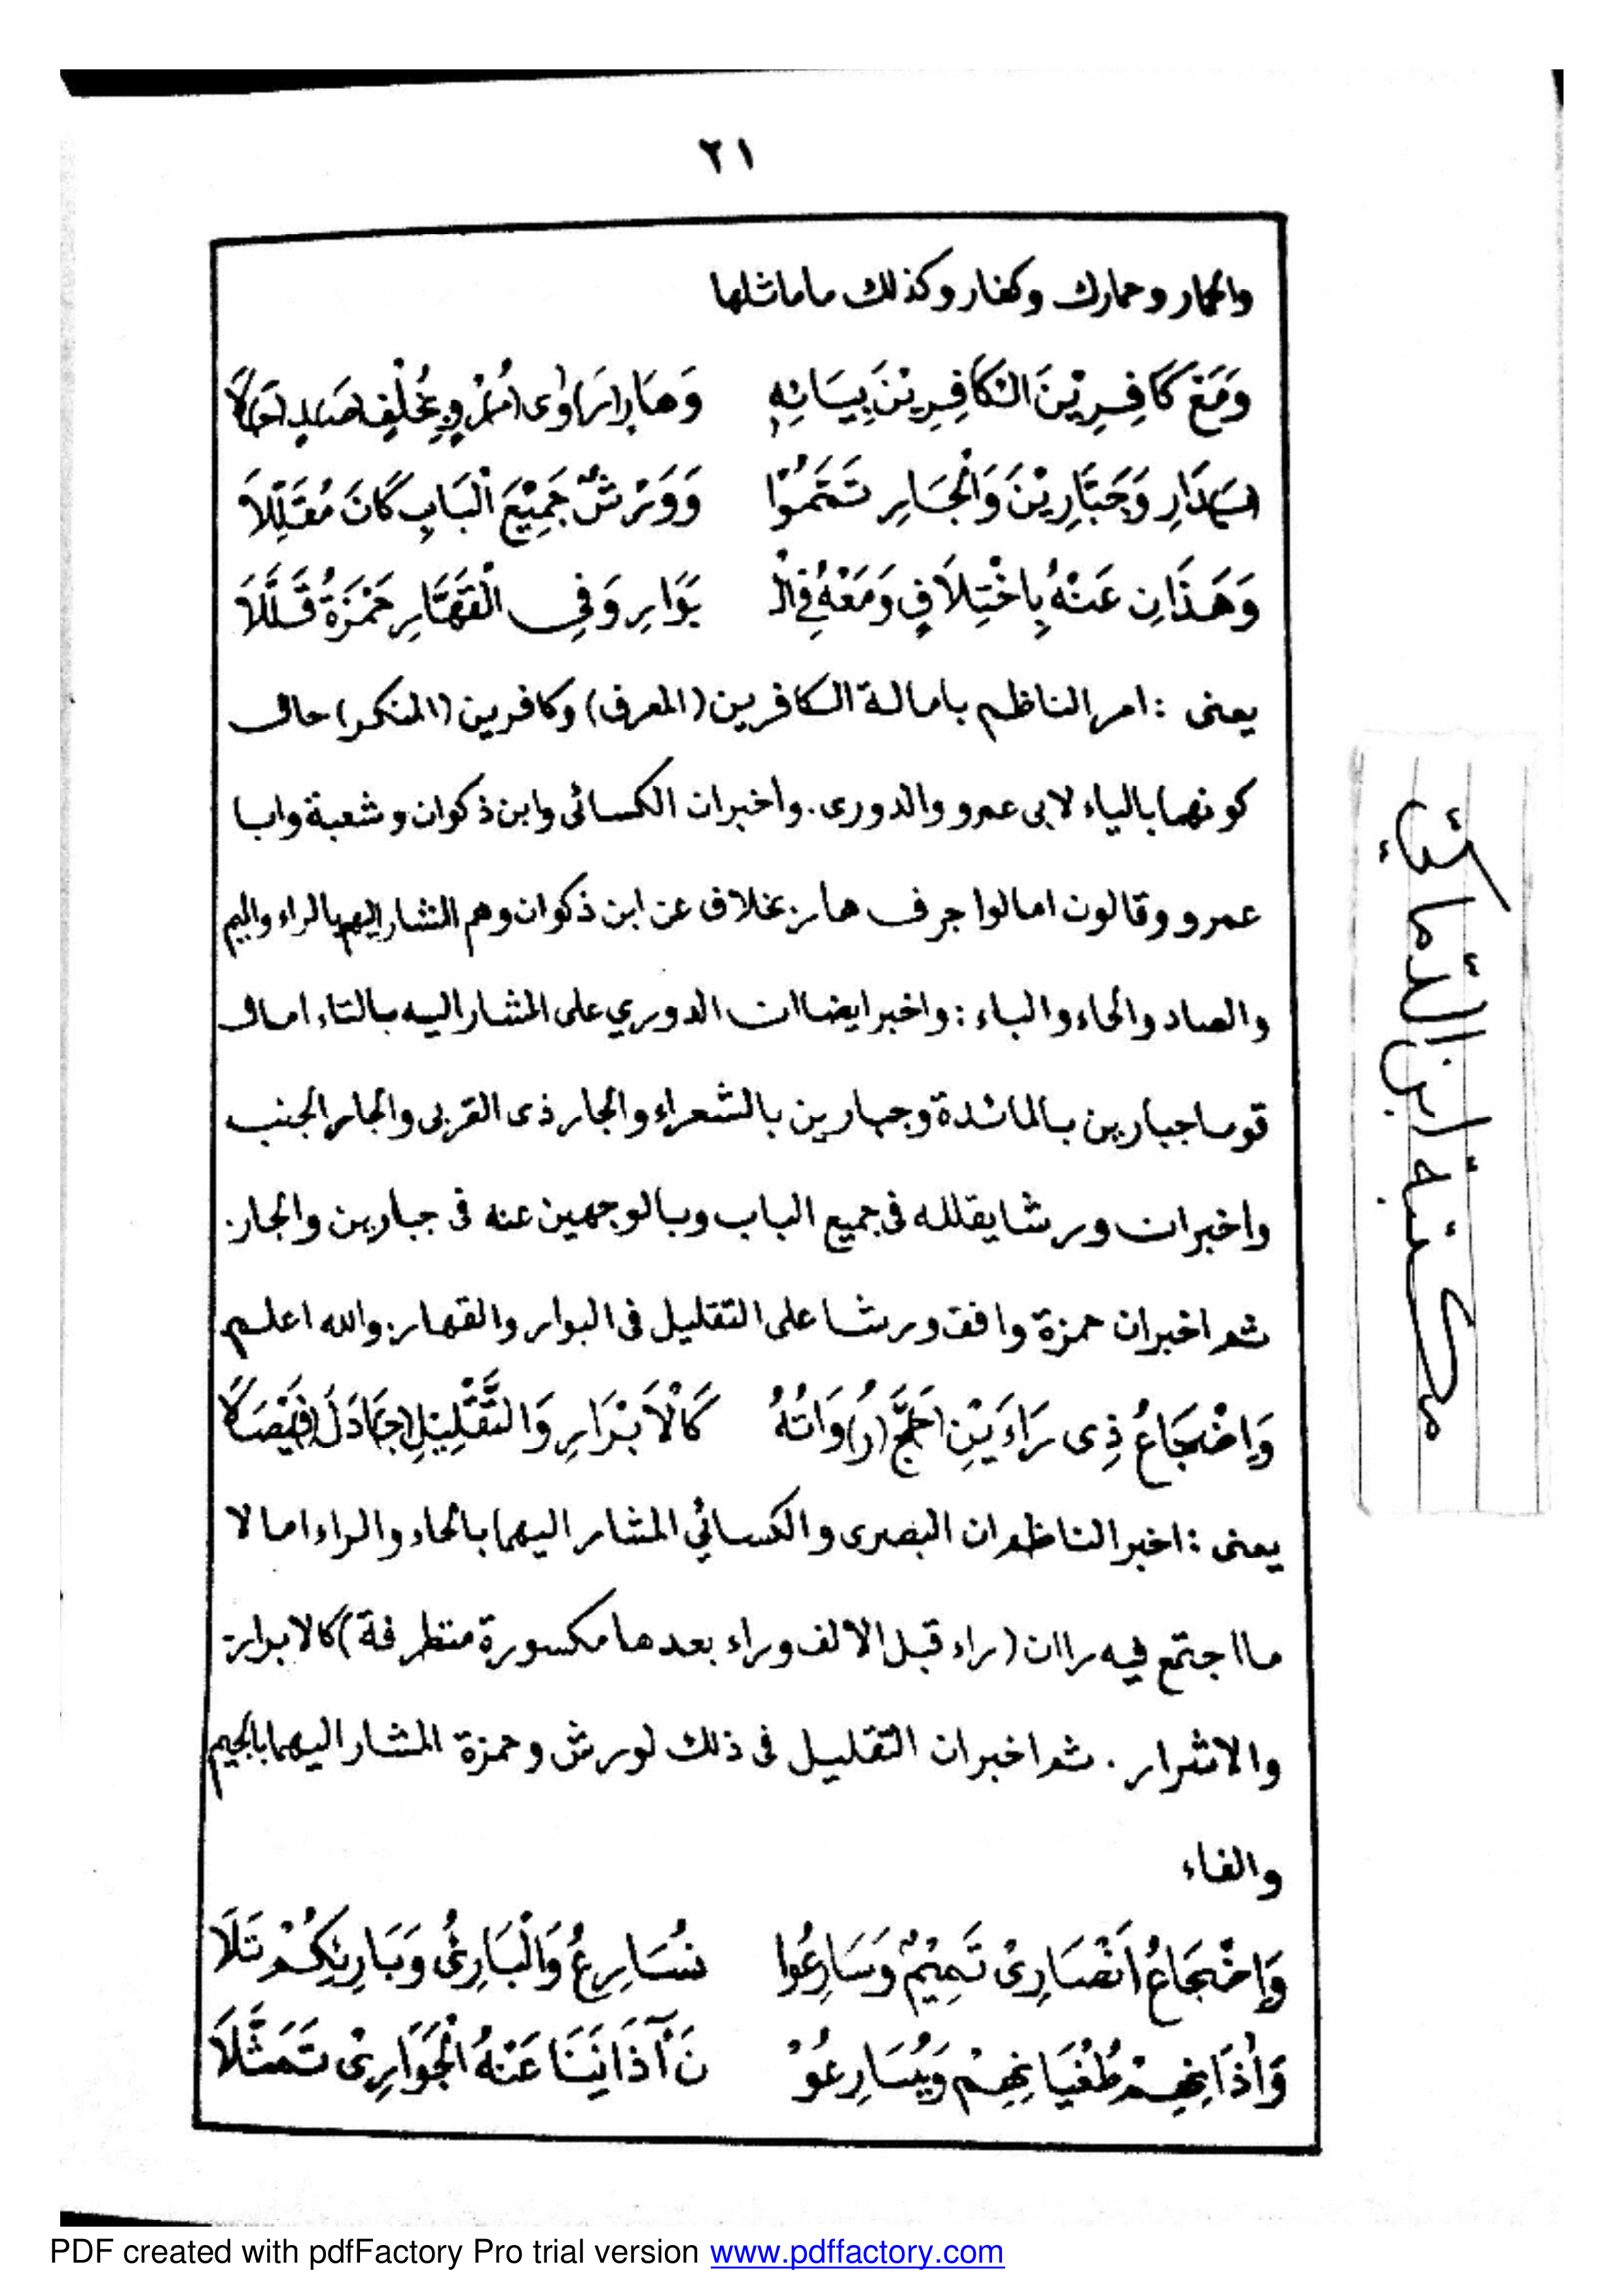 ٢١
والحمار وحمارك وكفار وكذلك ما ماثلها
وَمَعَ كَافِرِيْنَ الْكَافِرِيْنَ بِيَائِهِ وَهَارٍ
بَدَارِ وَجَبَّارِيْنَ وَالْجَارِ تَمَّمُوْا وَوَرْشٌ جَمِيْعَ الْبَابِ كَانَ مُقَلِّلَا
وَهَذَانِ عَنْهُ بِاخْتِلَافٍ وَمَعْهُ فِي الْـ بَوَارِ وَفِي الْقَهَّارِ حَمْزَةُ قَلَّلَا
يعنى : امر الناظم بامالة الكافرين (المعرف) وكافرين (المنكر) حال
كونهما بالياء لابى عمرو والدورى. واخبر ان الكسائى وابن ذكوان وشعبة وابا
عمرو وقالون امالوا جرف هار. بخلاف عن ابن ذكوان وهم المشار اليهم بالراء والميم
والصاد والحاء والباء : واخبر ايضا ان الدوري على المشار اليه بالتاء امال
قوما جبارين بالمائدة وجبارين بالشعراء والجار ذى القربى والجار الجنب
واخبر ان ورشا يقلله فى جميع الباب وبالوجهين عنه فى جبارين والجار.
ثم اخبر ان حمزة وافق ورشا على التقليل فى البوار والقهار. والله اعلم
وَاِضْجَاعُ ذِى رَاءَيْنِ حَجَّ (رُ)وَاتُهُ كَالْاَبْرَارِ وَالتَّقْلِيْلِ جَادَلَ فَيْصَلَا
يعنى : اخبر الناظم ان البصرى والكسائي المشار اليهما بالحاء والراء امالا
ما اجتمع فيه راان (راء قبل الالف وراء بعدها مكسورة متطرفة) كالابرار.
والاشرار . ثم اخبر ان التقليل فى ذلك لورش وحمزة المشار اليهما بالجيم
والفاء
وَاِضْجَاعُ اَنْصَارِىْ تَمِيْمٌ وَسَارِعُوا نُسَارِعُ وَالْبَارِئُ وَبَارِئِكُمْ تَلَا
وَاٰذَانِهِمْ طُغْيَانِهِمْ وَيُسَارِعُوْ نَ آذَانِنَا عَنْهُ الْجَوَارِىْ تَمَثَّلَا
PDF created with pdfFactory Pro trial version www.pdffactory.com